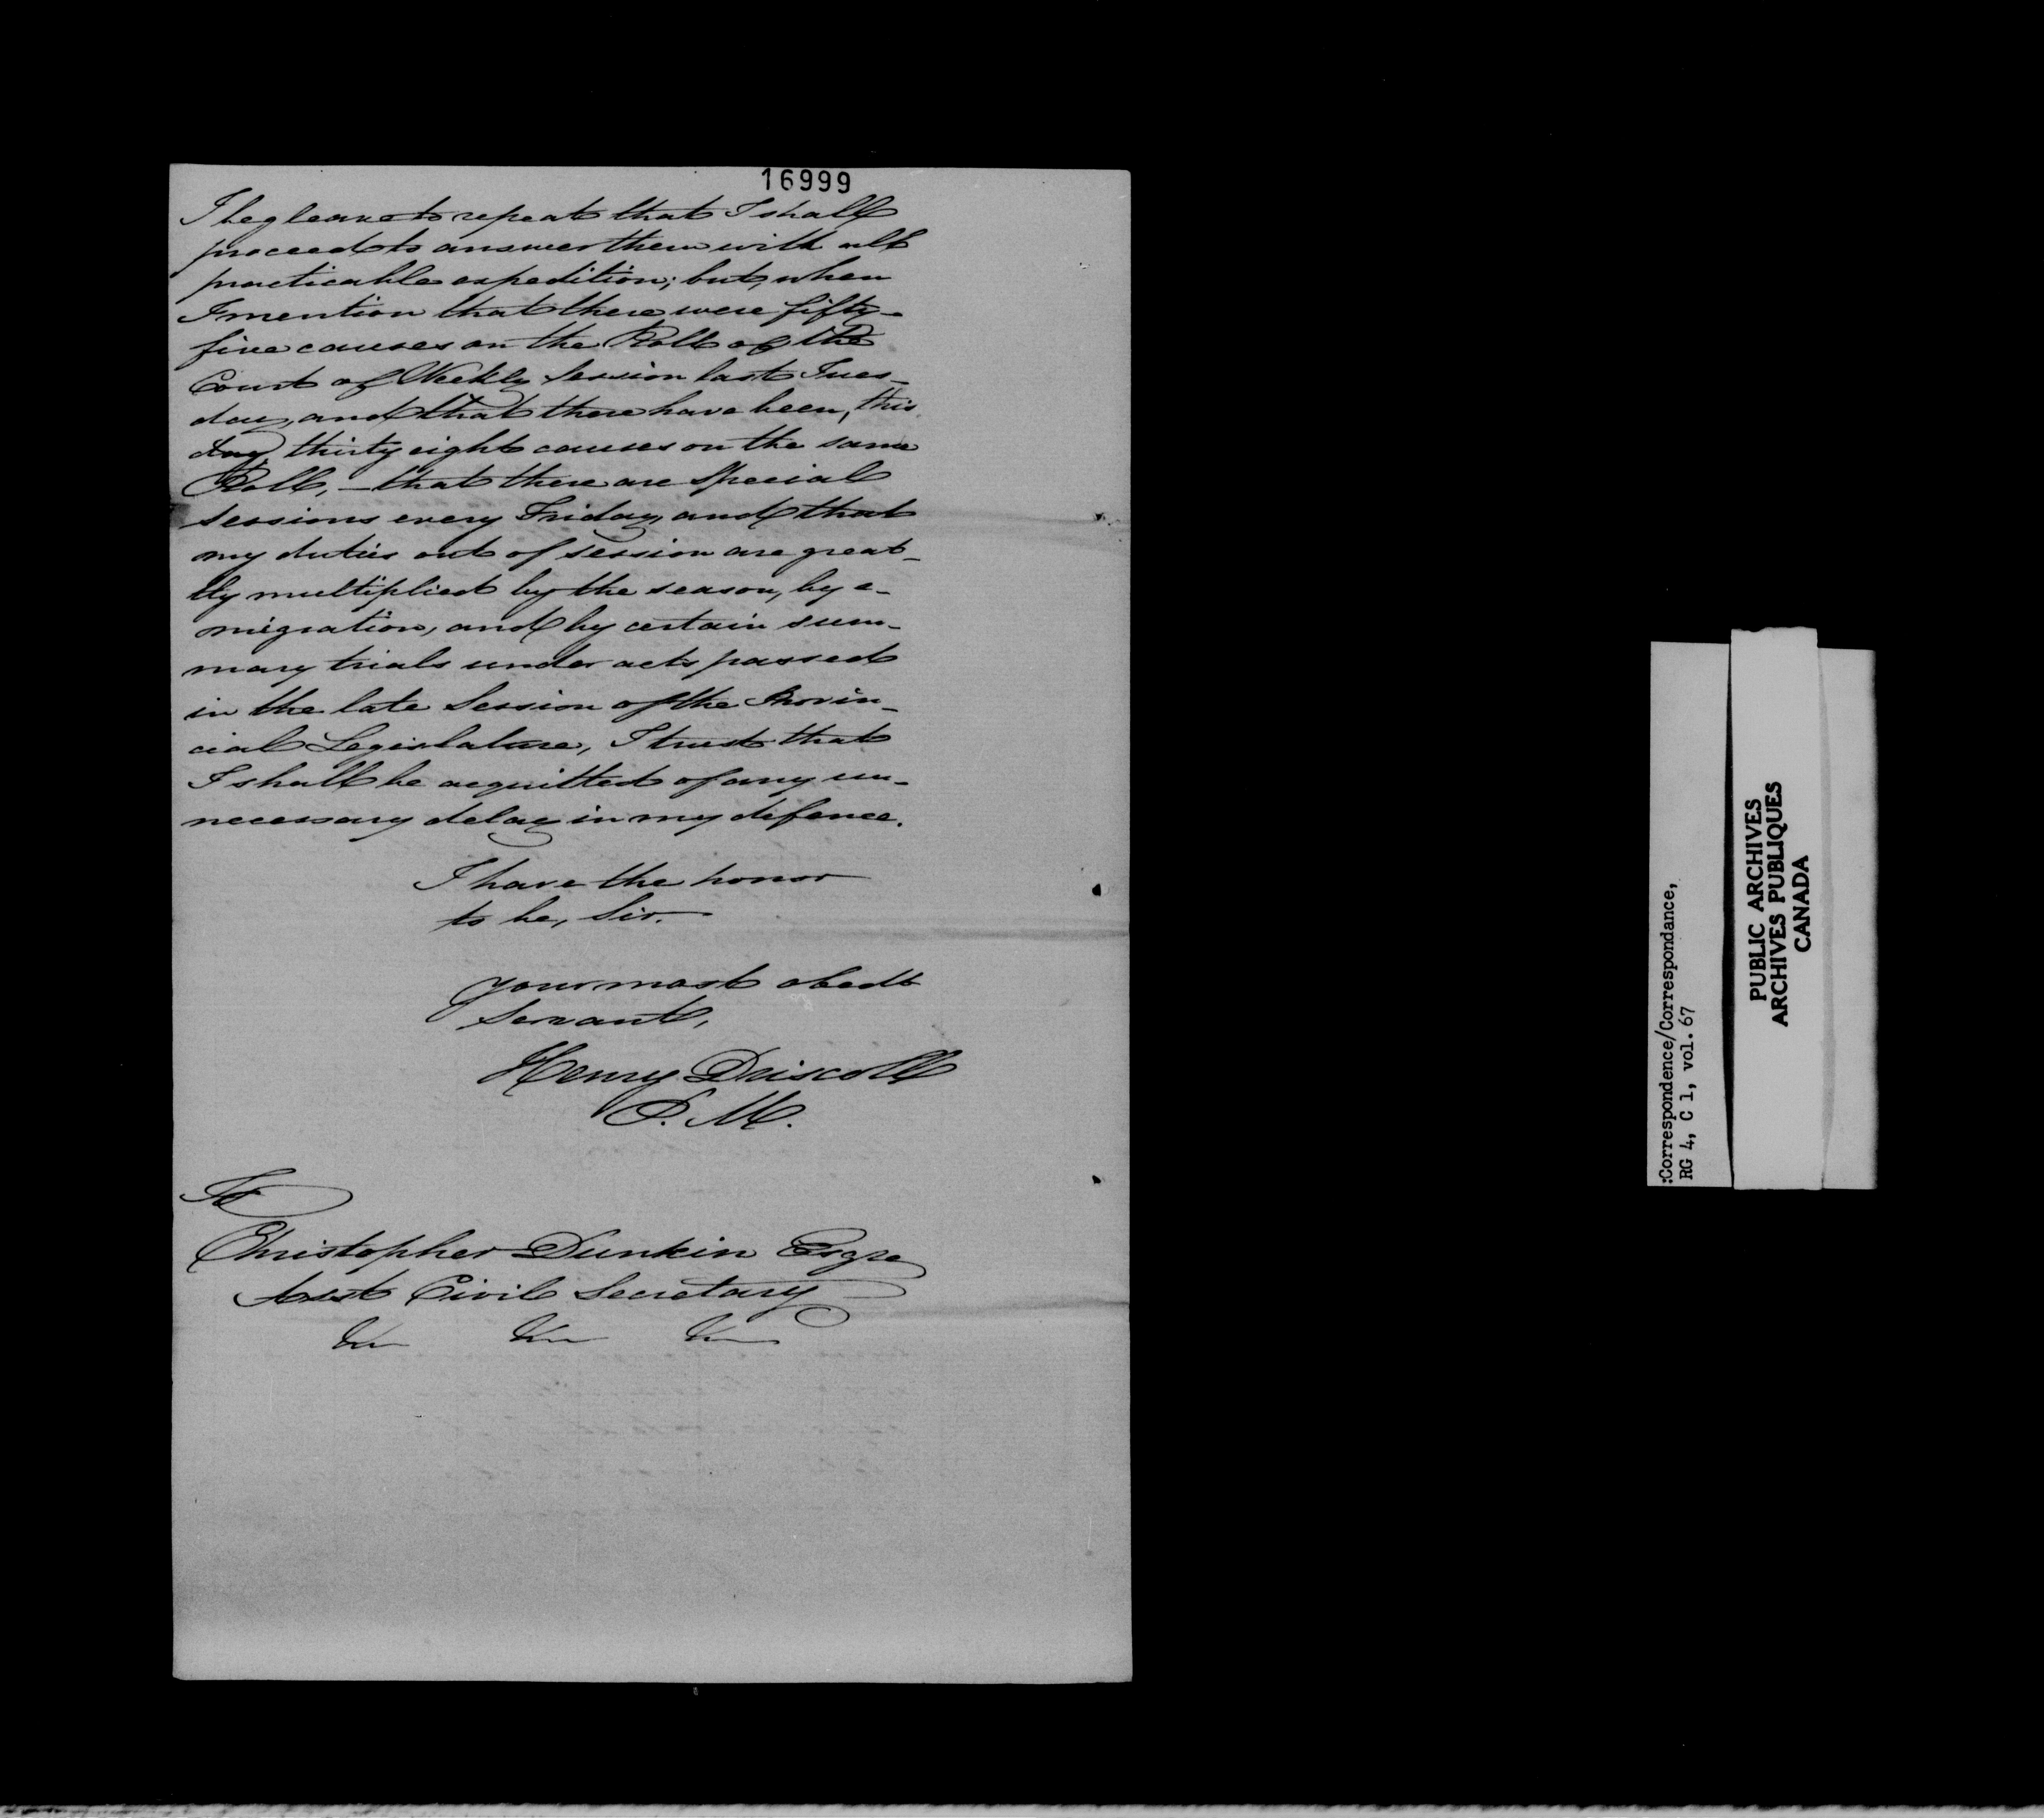 16999
I beg leave to repeat that I shall
proceed to answer them with all
practicable expedition; but, when
I mention that there were fifty-
five causes on the Roll of the
Court of Weekly Session last Tues-
day, and that there have been, this
day, thirty eight causes on the same
Roll, - that there are special
sessions every Friday, and that
my duties out of session are great-
ly multiplied by the season, by e-
migration, and by certain sum-
mary trials under acts passed
in the late Session of the Provin-
cial Legislature, I trust that
I shall be acquitted of any un-
necessary delay in my defence.
I have the honor
to be, Sir.
your most obedt
Servant,
Henry Driscoll
P. M.
To
Christopher Dunkin Esqre
Asst Civil Secretary
&c &c &c
:Correspondence/Correspondance,
RG 4, C 1, vol. 67
PUBLIC ARCHIVES
ARCHIVES PUBLIQUES
CANADA